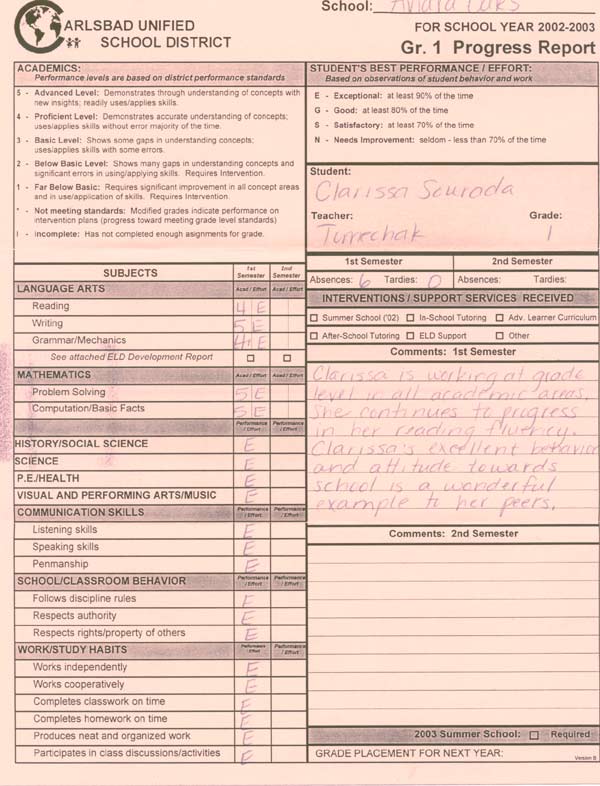 School: Aviara Oaks
CARLSBAD UNIFIED
SCHOOL DISTRICT
FOR SCHOOL YEAR 2002-2003
Gr. 1 Progress Report
ACADEMICS:
Performance levels are based on district performance standards
5 - Advanced Level: Demonstrates through understanding of concepts with
new insights; readily uses/applies skills.
4 - Proficient Level: Demonstrates accurate understanding of concepts;
uses/applies skills without error majority of the time.
3 - Basic Level: Shows some gaps in understanding concepts;
uses/applies skills with some errors.
2 - Below Basic Level: Shows many gaps in understanding concepts and
significant errors in using/applying skills. Requires Intervention.
1 - Far Below Basic: Requires significant improvement in all concept areas
and in use/application of skills. Requires Intervention.
* - Not meeting standards: Modified grades indicate performance on
intervention plans (progress toward meeting grade level standards)
I - Incomplete: Has not completed enough asignments for grade.
STUDENT'S BEST PERFORMANCE / EFFORT:
Based on observations of student behavior and work
E - Exceptional: at least 90% of the time
G - Good: at least 80% of the time
S - Satisfactory: at least 70% of the time
N - Needs Improvement: seldom - less than 70% of the time
Student:
Clarissa
Teacher: Grade:
Turrechak 1
1st Semester 2nd Semester
Absences: 6 Tardies: 0 Absences: Tardies:
INTERVENTIONS / SUPPORT SERVICES RECEIVED
Summer School ('02) In-School Tutoring Adv. Learner Curriculum
After-School Tutoring ELD Support Other
Comments: 1st Semester
Clarissa is working at grade
level in all academic areas.
She continues to progress
in her reading fluency.
Clarissa's excellent behavior
and attitude towards
school is a wonderful
example to her peers.
Comments: 2nd Semester
2003 Summer School: Required
GRADE PLACEMENT FOR NEXT YEAR:
Version B
SUBJECTS 1st Semester 2nd Semester
LANGUAGE ARTS Acad / Effort Acad / Effort
Reading 4 E
Writing 5 E
Grammar/Mechanics 4 E
See attached ELD Development Report
MATHEMATICS Acad / Effort Acad / Effort
Problem Solving 5 E
Computation/Basic Facts 5 E
Performance / Effort Performance / Effort
HISTORY/SOCIAL SCIENCE E
SCIENCE E
P.E./HEALTH E
VISUAL AND PERFORMING ARTS/MUSIC E
COMMUNICATION SKILLS Performance / Effort Performance / Effort
Listening skills E
Speaking skills E
Penmanship E
SCHOOL/CLASSROOM BEHAVIOR Performance / Effort Performance / Effort
Follows discipline rules E
Respects authority E
Respects rights/property of others E
WORK/STUDY HABITS Performance / Effort Performance / Effort
Works independently E
Works cooperatively E
Completes classwork on time E
Completes homework on time E
Produces neat and organized work E
Participates in class discussions/activities E